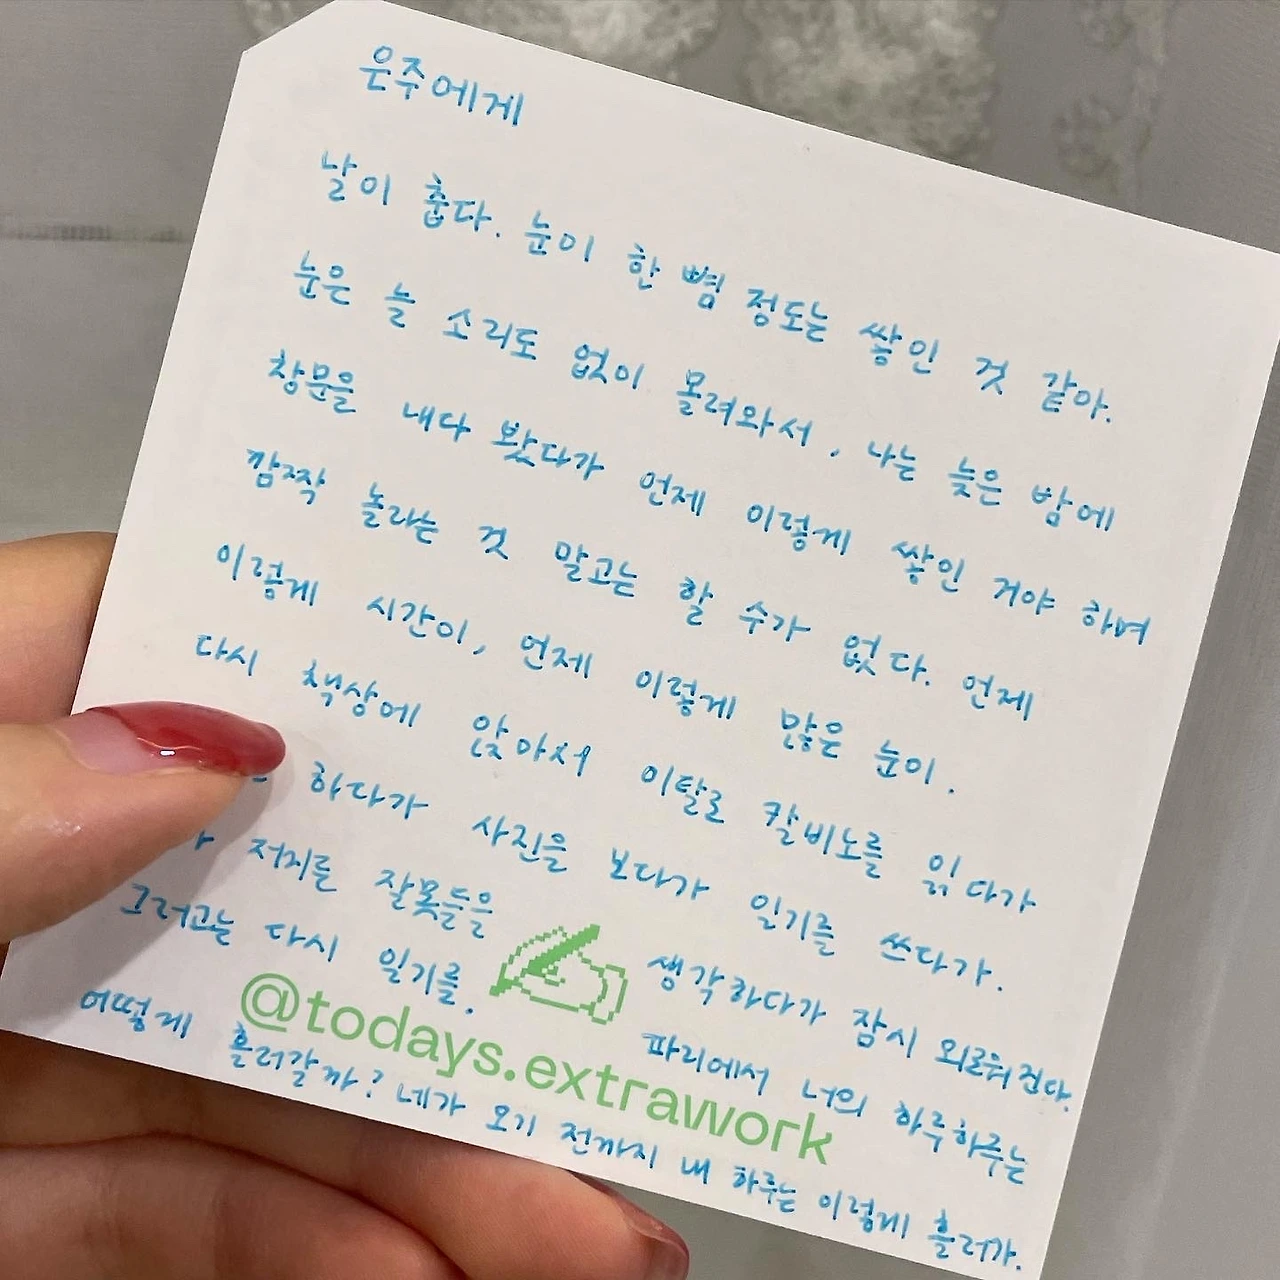 은주에게
날이 춥다. 눈이 한 뼘 정도는 쌓인 것 같아.
눈은 늘 소리도 없이 몰려와서, 나는 늦은 밤에
창문을 내다 봤다가 언제 이렇게 쌓인 거야 하며
깜짝 놀라는 것 말고는 할 수가 없다. 언제
이렇게 시간이, 언제 이렇게 많은 눈이.
다시 책상에 앉아서 이탈로 칼비노를 읽다가
하다가 사진을 보다가 일기를 쓰다가.
저지른 잘못들을 생각하다가 잠시 외로워진다.
그러고는 다시 일기를. 파리에서 너의 하루하루는
어떻게 흘러갈까? 네가 오기 전까지 내 하루는 이렇게 흘러가.
@todays.extrawork